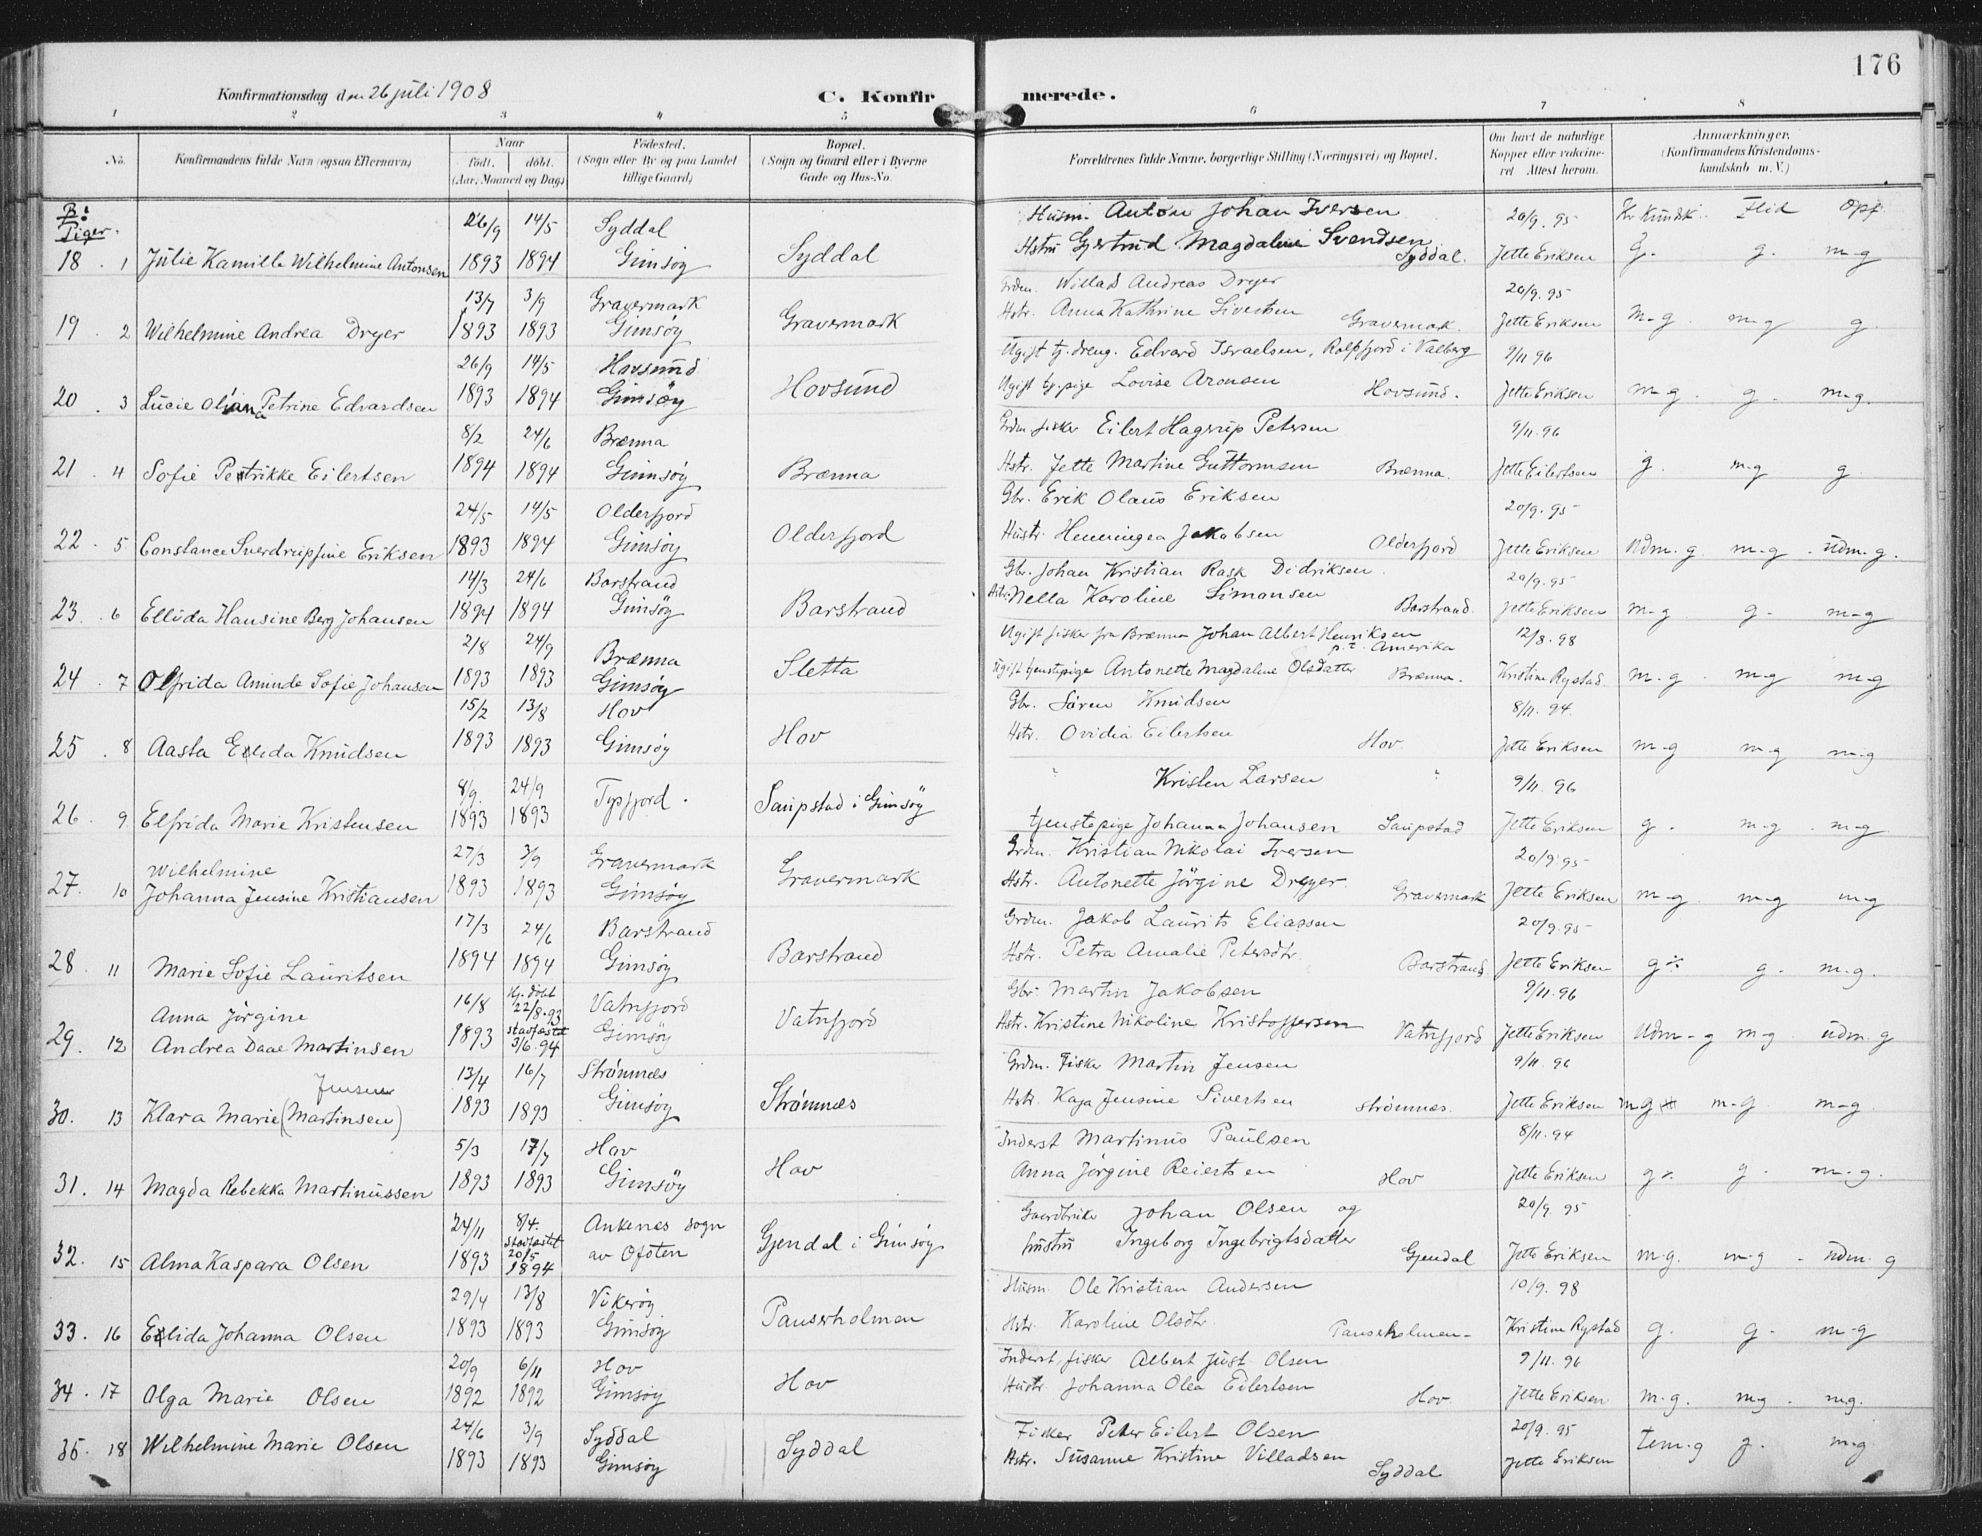 176
Konfirmationsdag den 26 juli 1908
C. Konfirmerede.
1 2 3 4 5 6 7 8
No. Konfirmandens fulde Navn (ogsaa Efternavn) Naar født. døbt. (Aar, Maaned og Dag) Fødested. (Sogn eller By og paa Landet tillige Gaard) Bopæl. (Sogn og Gaard eller i Byerne Gade og Hus-No. Forældrenes fulde Navne, borgerlige Stilling (Næringsvei) og Bopæl. Om havt de naturlige Kopper eller vakcineret Attest herom. Anmærkninger. (Konfirmandens Kristendomskundskab m. V.)
B: Piger. 26/9 14/5 Syddal Husm. Anton Johan Iversen 20/9. 95 Kr. Kundsk. Flid Opf.
18. 1 Julie Kamilla Wilhelmine Antonsen 1893 1894 Gimsöy Syddal Hstru Gjertrud Magdaline Svendsen Syddal. Jette Eriksen g. g. m-g
13/7 3/9 Gravermark Grdm. Willad Andreas Dreyer 20/9. 95
19. 2 Wilhelmine Andrea Dreyer 1893 1893 Gimsöy Gravermark Hstr. Anna Kathrine Sivertsen Gravermark. Jette Eriksen m-g. m-g g.
26/9 14/5 Hovsund Ugift tj. dreng. Edvard Israelsen, Rolfsfjord i Valberg 9/11 96
20. 3 Lucie Oliana Petrine Edvardsen 1893 1894 Gimsöy Hovsund Ugift tj. pige Lovise Aronsen Hovsund. Jette Eriksen m-g. g. m-g.
8/2 24/6 Brænna Grdm. fisker Eilert Hagerup Petersen 9/11. 96
21. 4 Sofie Petrikke Eilertsen 1894 1894 Gimsöy Brænna Hstr. Jette Martine Guttormsen Brænna. Jette Eilertsen g. m-g g
24/5 14/5 Olderfjord Gbr. Erik Olaus Eriksen 20/9. 95
22. 5 Constance Sverdrupfine Eriksen 1893 1894 Gimsöy Olderfjord Hustr. Henningea Jakobsen Olderfjord Jette Eriksen Udm. g. m-g. udm. g.
14/3 24/6 Barstrand Gbr. Johan Kristian Rask Didriksen. 20/9. 95
23. 6 Ellida Hansine Berg Johansen 1894 1894 Gimsöy Barstrand Hstr. Nella Karoline Simonsen Barstrand. Jette Eriksen m-g. g. m-g
2/8 24/9 Brænna Ugift fisker fra Brænna Johan Albert Henriksen p.t. Amerika 12/8. 98
24. 7 Olfrida Aminde Sofie Johansen 1893 1893 Gimsöy Sletta Ugift tjenstepige Antonette Magdaline Olsdatter Brænna. Kristine Rystad. m-g. m-g m-g
15/2 13/8 Hov Gbr. Sören Knudsen 8/11. 94.
25. 8 Aasta Elida Knudsen 1893 1893 Gimsöy Hov Hstr. Ovidia Eilertsen Hov. Jette Eriksen m-g m-g m-g
8/9. 24/9 Kristen Larsen 9/11. 96
26. 9. Elfrida Marie Kristensen 1893 1893 Saupstad i Gimsöy tjenstepige Johanna Johansen Saupstad Jette Eriksen g. m-g. m-g.
Wilhelmine 27/3 3/9 Gravermark Grdm. Kristian Nikolai Iversen 20/9. 95
27. 10 Johanna Jensine Kristiansen 1893 1893 Gimsöy Gravermark Hstr. Antonette Jörgine Dreyer. Gravermark Jette Eriksen m-g. m-g m-g
17/3 24/6 Barstrand Grdm. Jakob Laurits Eliassen 20/9. 95
28. 11 Marie Sofie Lauritsen 1894 1894 Gimsöy Barstrand Hstr. Petra Amalie Petersdtr. Barstrand Jette Eriksen g. g. m-g.
Anna Jörgine 16/8 hj. döbt 22/8. 93 Vatnfjord Gbr. Martin Jakobsen 9/11. 96
29. 12 Andrea Daae Martinsen 1893 stadfæstet 3/6. 94 Gimsöy Vatnfjord Hstr. Kristine Nikoline Kristoffersen Vatnfjord Jette Eriksen Udm-g m-g. udm. g
Jensen 13/4 16/7 Strømnæs Grdm. Fisker Martin Jensen 9/11. 96
30. 13 Klara Marie (Martinsen) 1893 1893 Gimsöy Strømnæs Hstr. Kaja Jensine Sivertsen Strømnæs. Jette Eriksen m-g m-g m-g.
5/3 17/7 Hov Inderst Martinus Paulsen 8/11. 94
31. 14 Magda Rebekka Martinussen 1893 1893 Gimsöy Hov Anna Jörgine Reiertsen Hov Jette Eriksen g. g. m-g.
24/11 8/4. stadfæstet Ankenes sogn Gaardbruker Johan Olsen og 20/9. 95
32. 15 Alma Kaspara Olsen 1893 20/5 1894 av Ofoten Gjendal i Gimsöy hustru Ingeborg Ingebrigtsdatter Gjendal Jette Eriksen m-g. m-g. udm. g
29/4 13/8 Vikeröy Husm. Ole Kristian Andersen 10/9. 98
33. 16 Elida Johanna Olsen 1893 1893 Gimsöy Pauserholman Hstr. Karoline Olsdtr. Kristine Rystad g. g. m-g
20/9 6/11 Hov Inderst, fisker Albert Just Olsen 9/11. 96
34. 17 Olga Marie Olsen 1892 1892 Gimsöy Hov Hustr. Johanna Olea Eilertsen Hov Jette Eriksen m-g. m-g. m-g.
24/6 3/9 Syddal Fisker Peter Eilert Olsen 20/9. 95
35. 18 Wilhelmine Marie Olsen 1893 1893 Gimsöy Syddal Hstr. Susanne Kristine Villadsen Syddal Jette Eriksen tem-g g. m-g